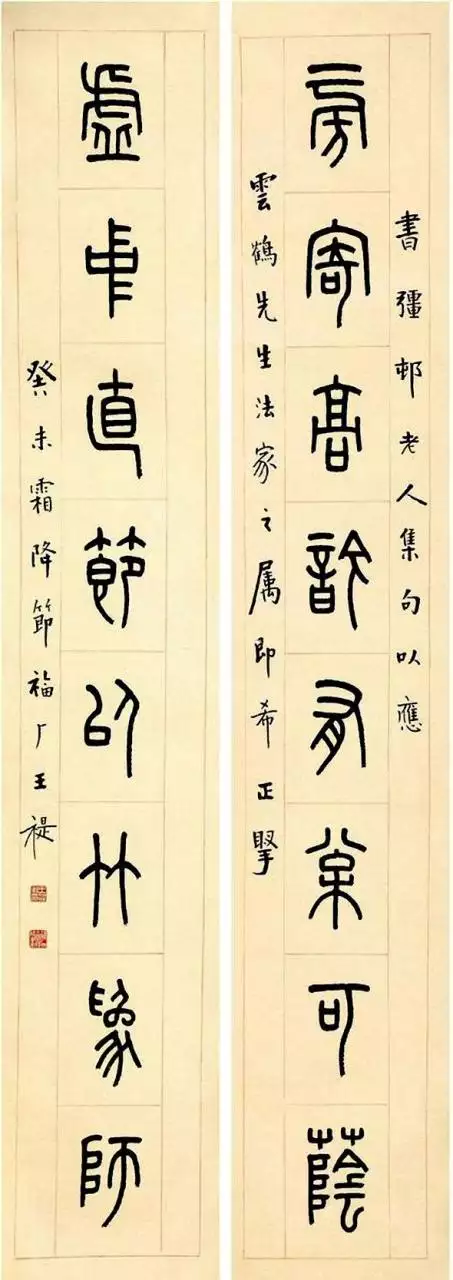 書彊邨老人集句以應
旁寄高有棠可蔭
雲鶴先生法家之属即希正掔
虛中直節以竹為師
癸未霜降節福厂王禔